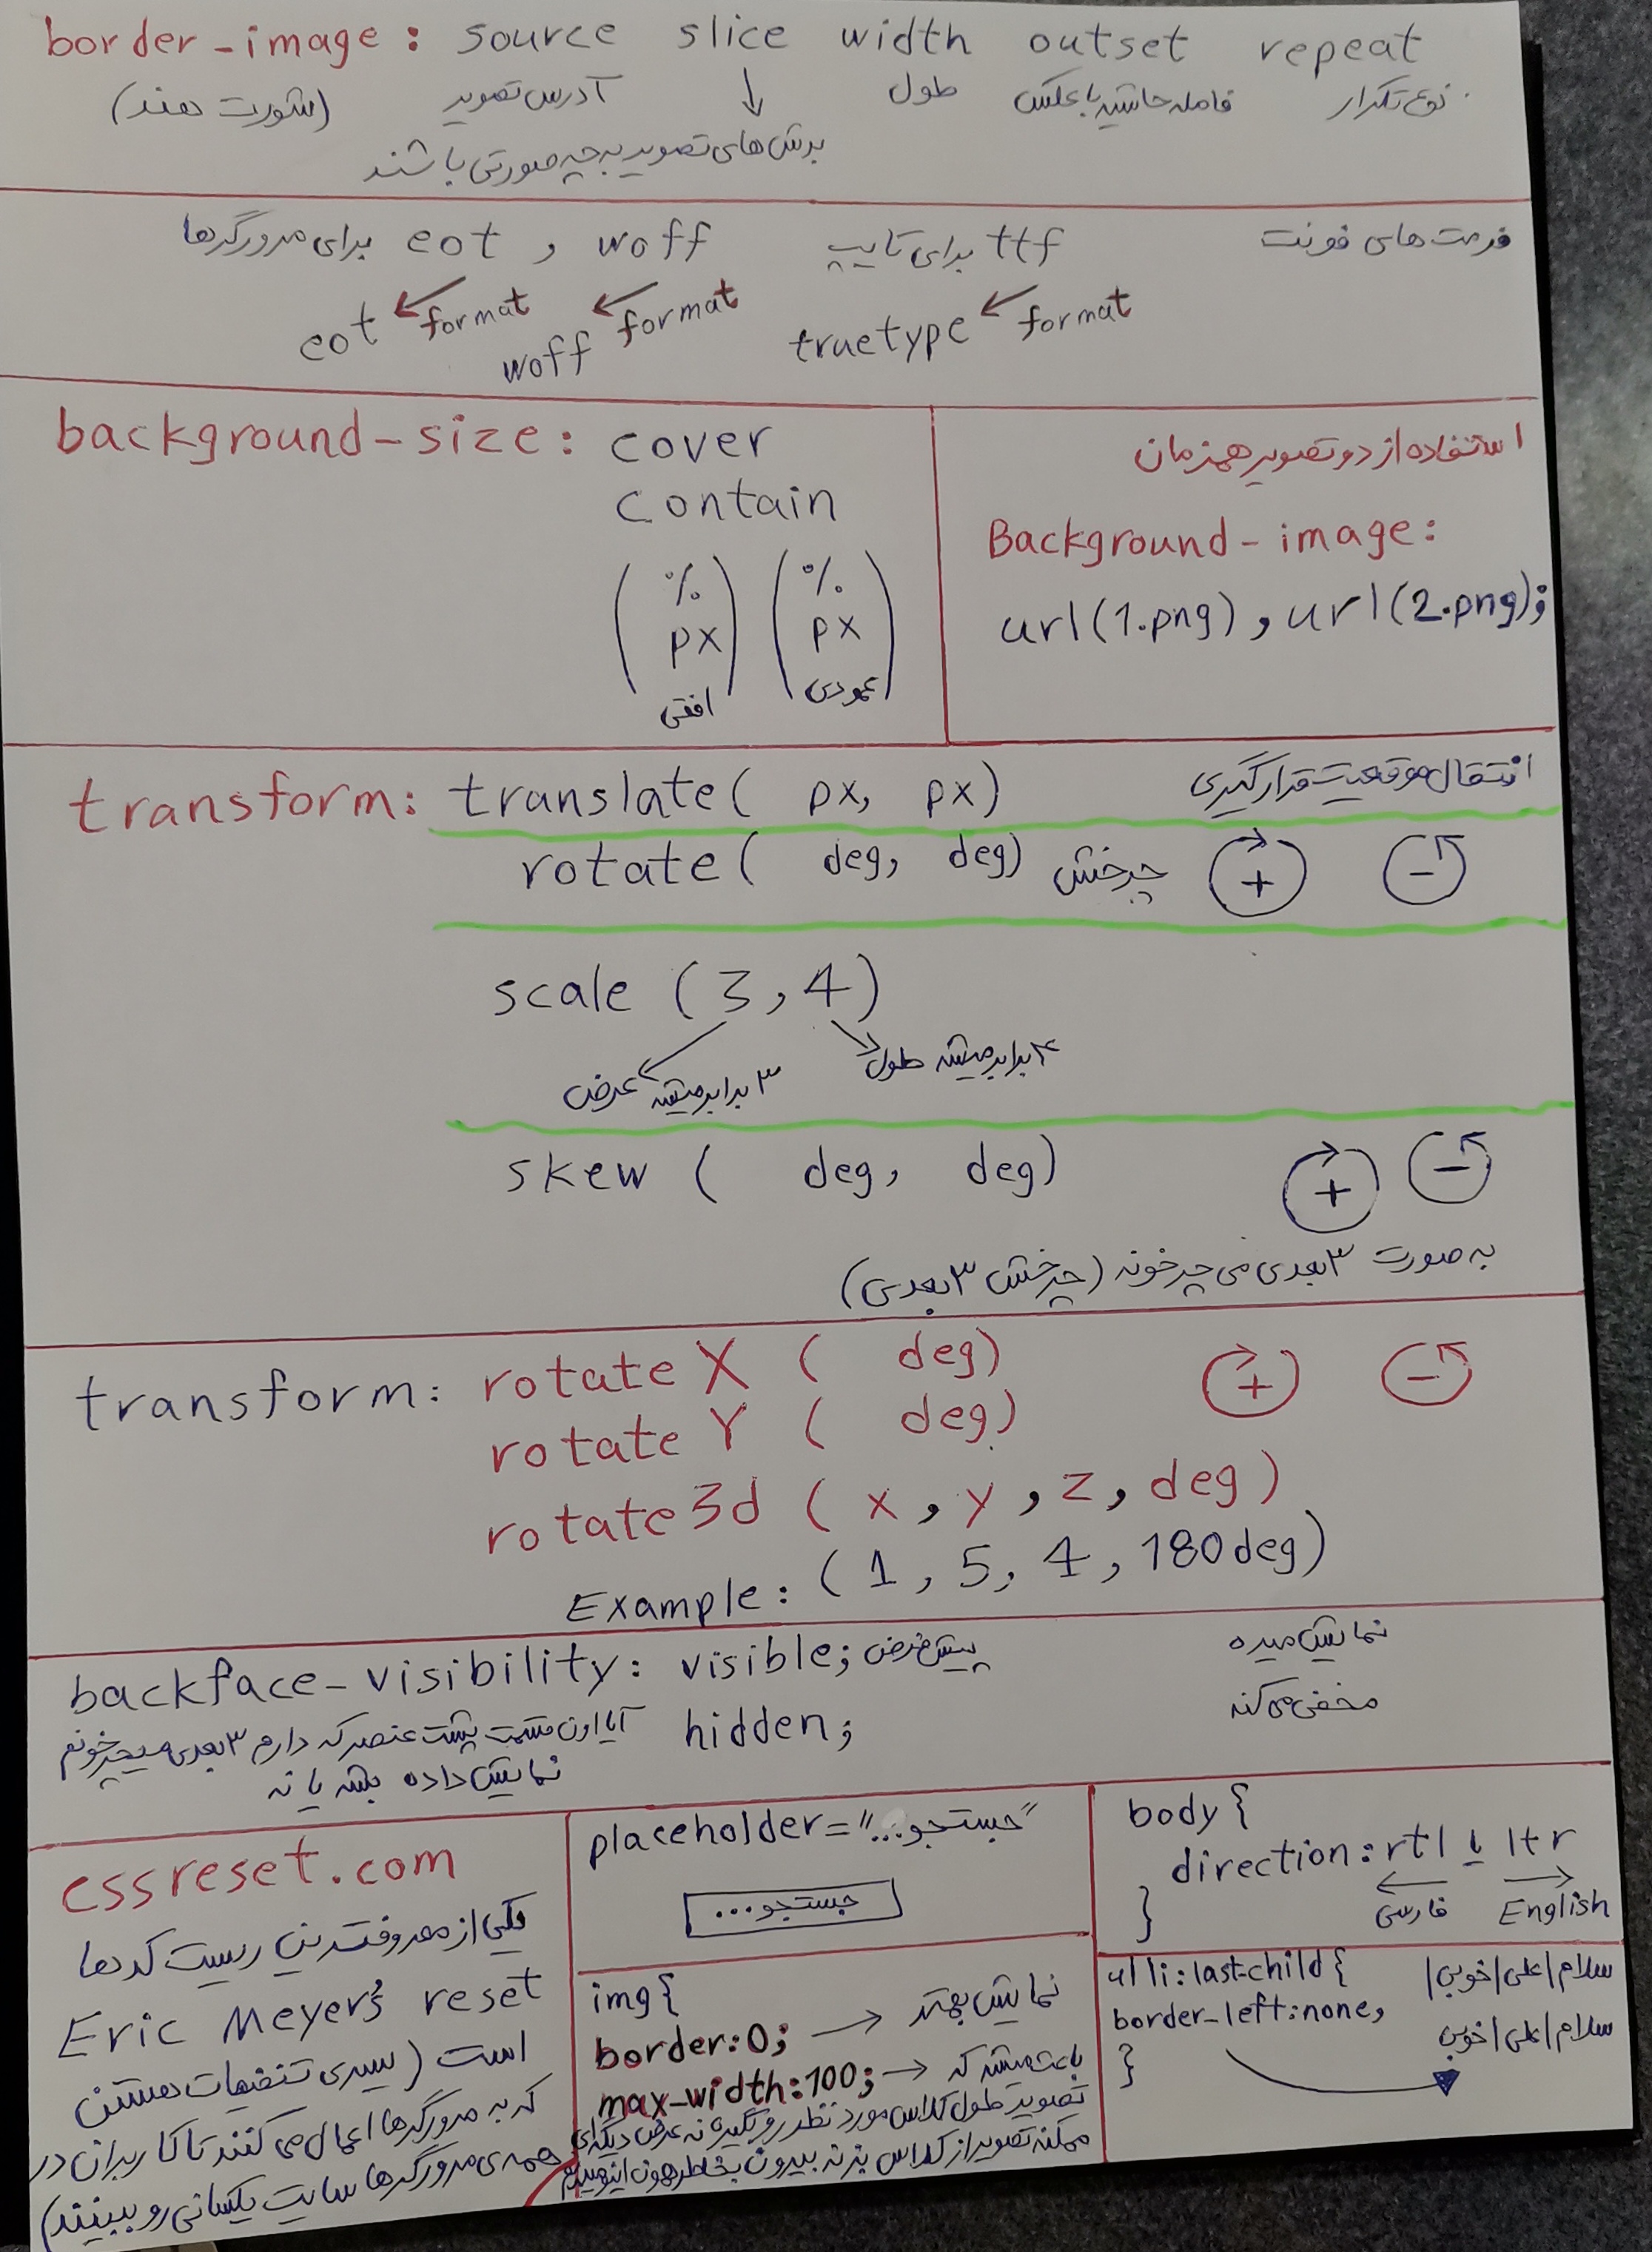 border-image: source slice width outset repeat
(شورت هند) آدرس تصویر ↓ طول فاصله حاشیه با عکس نوع تکرار
برش های تصویر به چه صورتی باشند
فرمت های فونت ttf برای تایپ woff , eot برای مرورگرها
truetype ← format woff ← format eot ← format
background-size: cover
contain
(% px افقی) (% px عمودی)
استفاده از دو تصویر همزمان
Background-image:
url(1.png), url(2.png);
transform: translate( px, px) انتقال موقعیت قرارگیری
rotate( deg, deg) چرخش + -
scale (3,4)
۳ برابر میشه عرض ۴ برابر میشه طول
skew ( deg, deg) + -
به صورت ۳ بعدی می چرخونه (چرخش ۳ بعدی)
transform: rotateX ( deg) + -
rotateY ( deg)
rotate3d (x, y, z, deg)
Example: (1, 5, 4, 180deg)
backface-visibility: visible; پیش فرض نمایش میده
hidden; مخفی می کند
آیا اون قسمت پشت عنصر که دارم ۳ بعدی میچرخونم
نمایش داده بشه یا نه
cssreset.com
یکی از معروفترین ریست کدها
Eric Meyer's reset
است (یسری تنظیمات هستن
که به مرورگرها اعمال می کنند تا کاربران در
همه ی مرورگرها سایت یکسانی رو ببینند)
placeholder="جستجو..."
جستجو...
img{
border:0; → نمایش بهتر
max-width:100; → باعث میشه که
تصویر طول کلاس مورد نظر رو بگیره نه عرض دیگه ای
ممکنه تصویر از کلاس بزنه بیرون بخاطر همون اینو میدیم
body{
direction:rtl یا ltr
فارسی English
}
ul li:last-child{
border-left:none,
}
سلام|علی|خوبی|
سلام|علی|خوبی